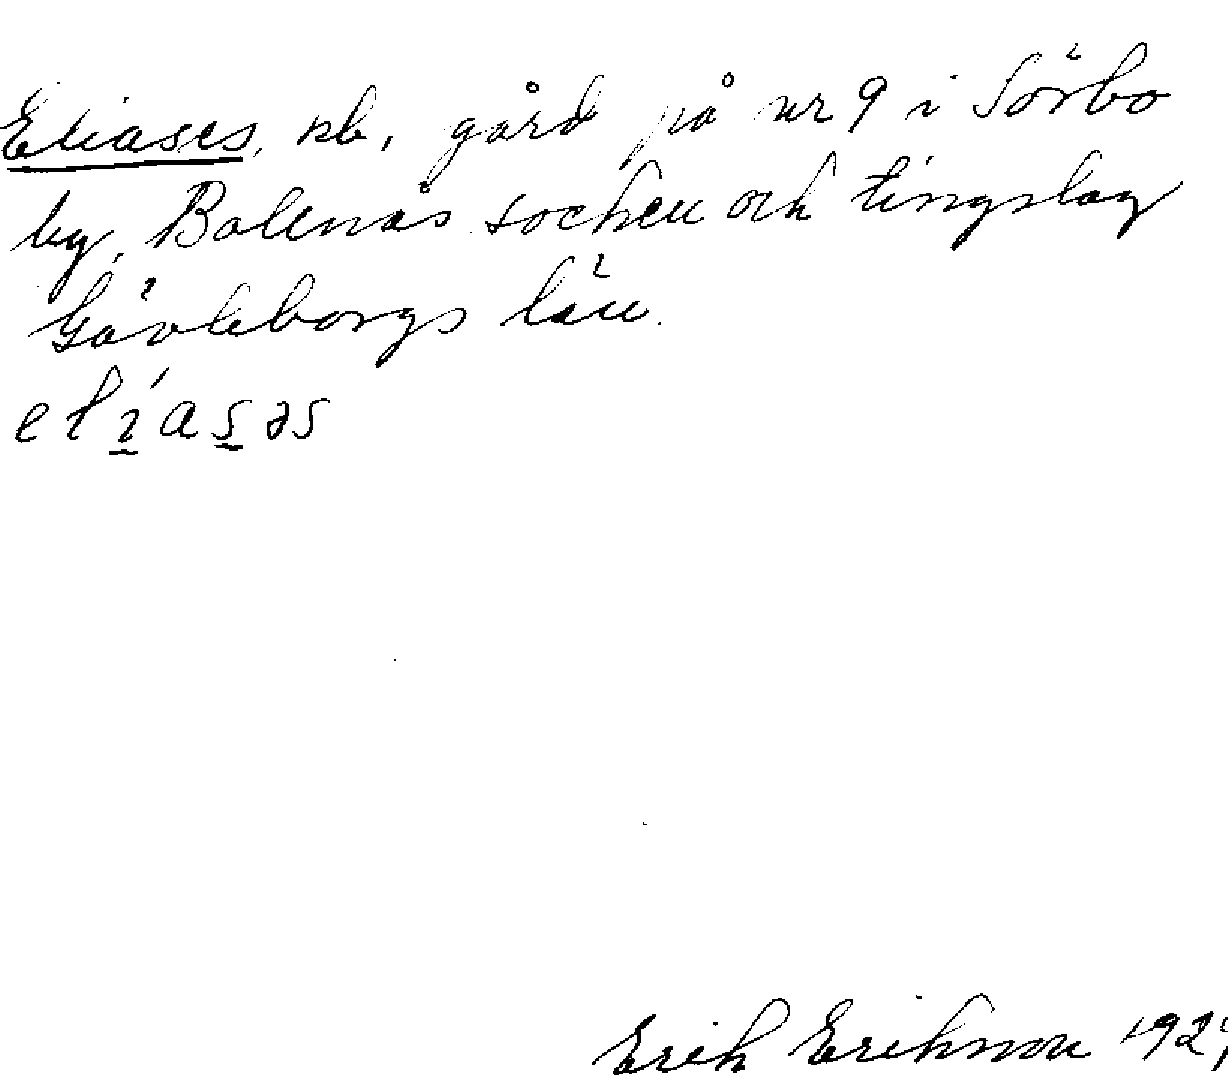 Eliases, kb, gård på nr 9 i Sörbo
by, Bolenäs socken och tingslag
Gävleborgs län.
elíasəs
Erik Erikson